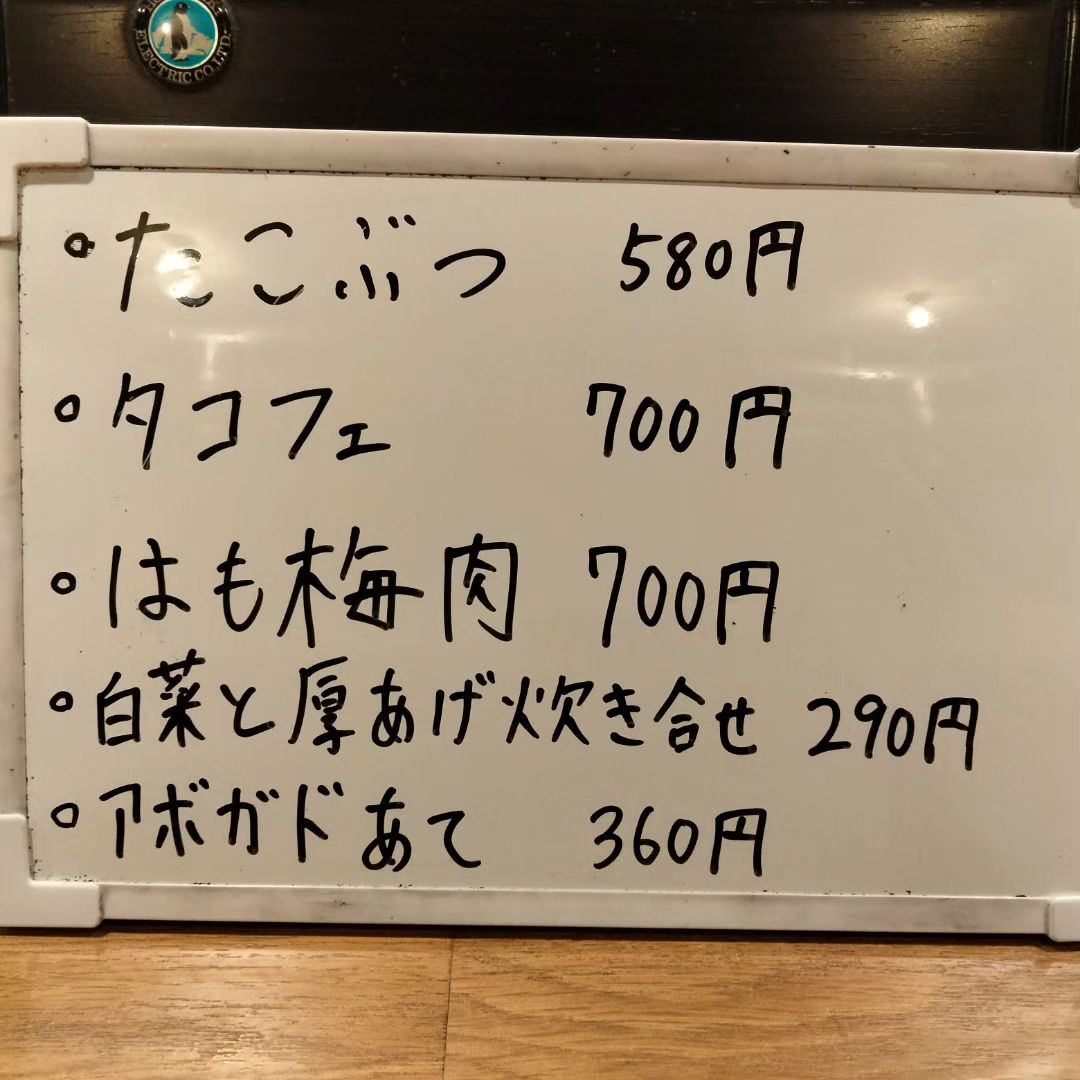 ELECTRIC CO.LTD.
・たこぶつ 580円
・タコフェ 700円
・はも梅肉 700円
・白菜と厚あげ炊き合せ 290円
・アボガドあて 360円